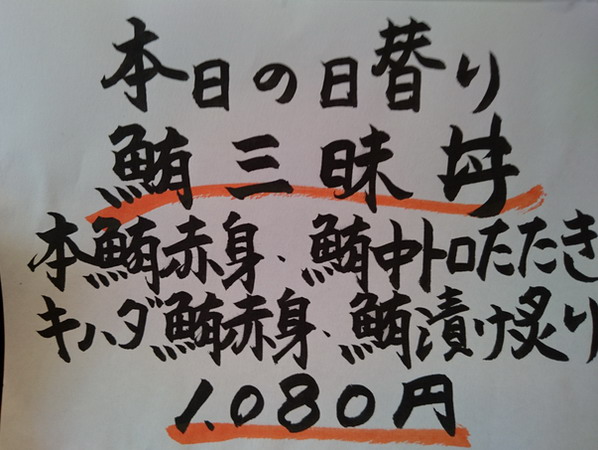 本日の日替り
鮪三昧丼
本鮪赤身、鮪中トロたたき
キハダ鮪赤身、鮪漬け炙り
1,080円